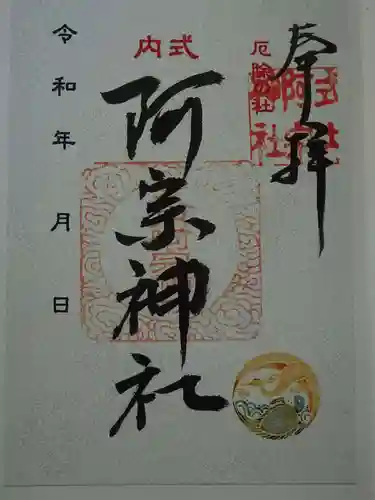 奉拝
厄除の社
式内
阿宗神社
令和年月日